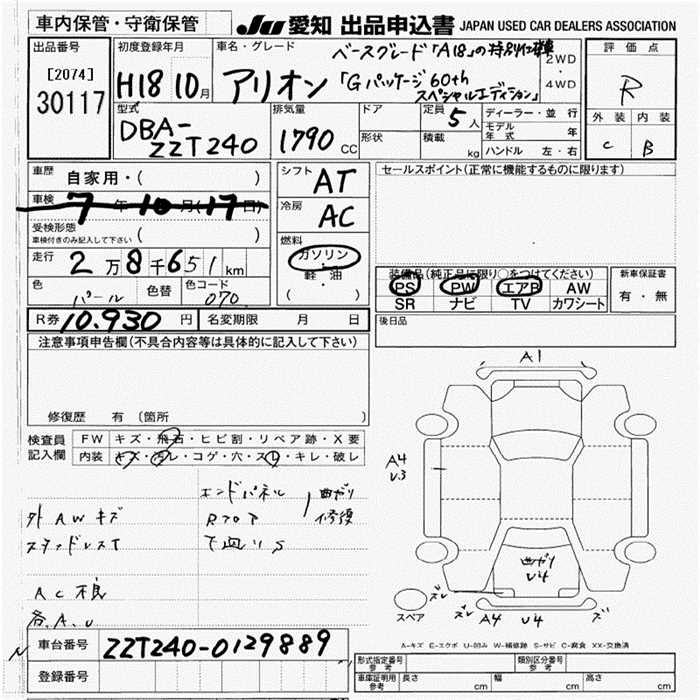 車内保管・守衛保管
JU 愛知 出品申込書 JAPAN USED CAR DEALERS ASSOCIATION
出品番号
[2074]
30117
初度登録年月
H18 10月
車名・グレード
ベースグレード「A18」の特別仕様車
アリオン 「Gパッケージ 60th
スペシャルエディション」
2WD
・
4WD
評価点
R
外装 内装
C B
型式
DBA-
ZZT240
排気量
1790 CC
ドア
形状
定員 5人
積載 kg
ディーラー・並行
モデル年式 年
ハンドル 左・右
車歴 自家用・( )
車検 7年10月(17日)
受検形態
車検付きのみ記入して下さい ( )
走行 2万8千651km
色 パール 色替 色コード 070
シフト AT
冷房 AC
燃料
ガソリン
軽・油
( )
セールスポイント(正常に機能するものに限ります)
装備品(純正品に限り○をつけてください)
PS PW エアB AW
SR ナビ TV カワシート
新車保証書
有・無
後日品
R券 10.930円 名変期限 月 日
注意事項申告欄(不具合内容等は具体的に記入して下さい)
修復歴 有 〔箇所 〕
検査員
記入欄
FW キズ・飛石・ヒビ割・リペア跡・X要
内装 キズ・汚レ・コゲ・穴・スレ・キレ・破レ
エンドパネル
Rフロア
曲ガリ
修復
外 AWキズ
スタッドレスT
下廻りS
AC不良
各A.U
A1
A4
U3
曲ガリ
U4
スペア
ズレ
ズレ
A4 U4 ズレ
A-キズ E-エクボ U-凹み W-補修跡 S-サビ C-腐食 XX-交換済
車台番号 ZZT240-0129889
登録番号
形式指定番号
参考
類別区分番号
参考
車庫証明用
参考
長さ cm 幅 cm 高さ cm